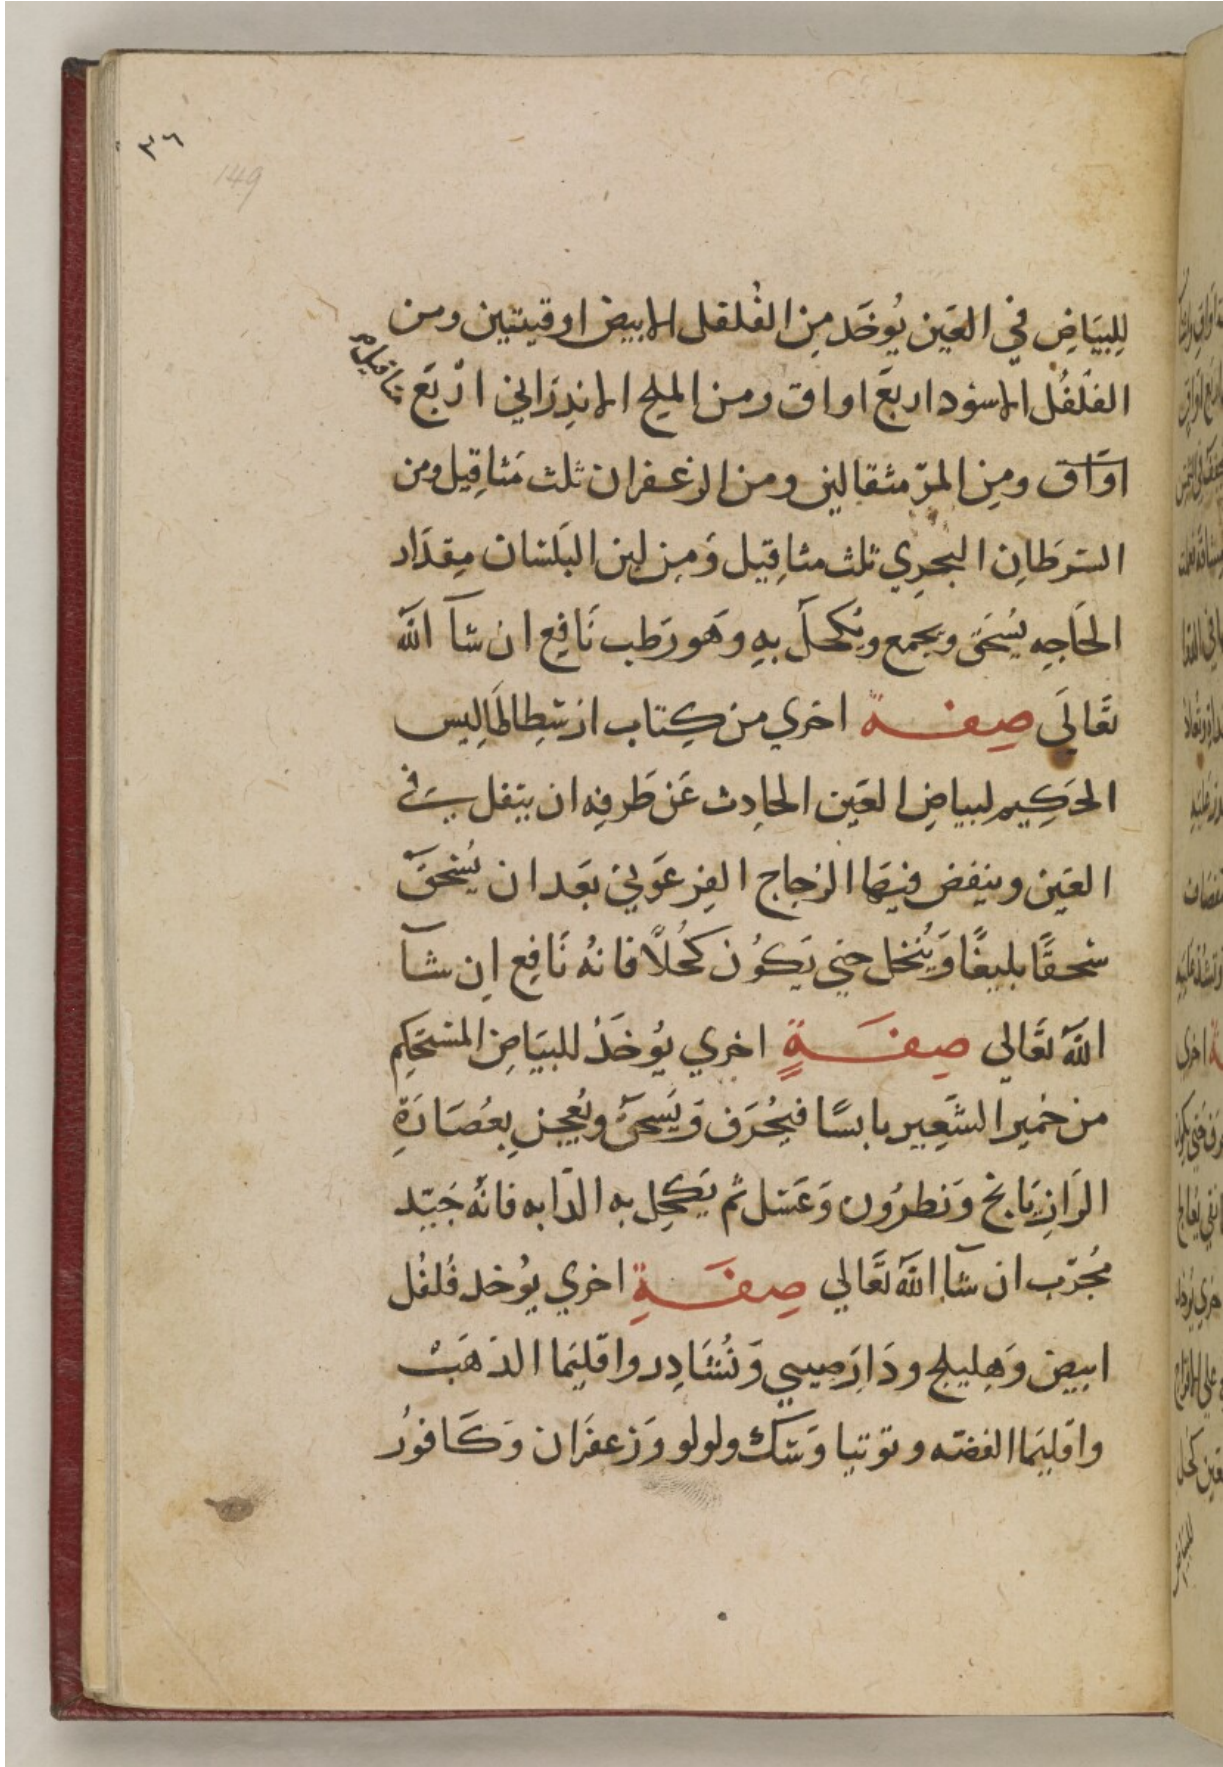 ٣٦
149
لِلبيَاضِ في العَين يُوخَد مِن الفُلفل الابيض اوقيتين ومن
الفلفُل الاسود اربعَ اواق ومن الملح الاندِرَاني اربَع
مثاقيل
اوَاق ومِن المرّ مثقالين ومن الزعفران ثلث مثَاقِيل ومن
السَرطَانِ البحرِي ثلث مثاقِيل وَمِن لبن البَلسَان مِقدَار
الحَاجه يُسحَق ويجمع ويُكحلَ بهِ وَهو رَطب نَافِع ان شآ الله
تعَالَي صِفة اخري من كِتاب ارسطاطَالِيس
الحَكِيم لبياضِ العَين الحادِث عَن طَرفِه ان يتفل في
العَين وينفض فيهَا الزجاج الفِرعَوني بَعد ان يُسحَق
سحقًا بليغًا وَيُنخل حتي يَكوُن كحُلًا فانهُ نَافِع ان شآ
الله تعَالي صِفَةٍ اخري يوُخَذ للبيَاضِ المستحكِم
من خمير الشَعِير يابسًا فيُحرَق وَيَسحق ويُعجن بِعُصَارَةِ
الرَازِيَانج وَنطرُون وَعَسَل ثم يَكحِل به الدّابه فانّهُ جَيّد
مُجرّب ان شآ الله تعَالي صِفَةِ اخري يوُخد فُلفُل
ابيض وَهِليلج ودَارَصيني وَنُشَادِر واقليَما الذهَبْ
واقليَما الفضه وتوتيا وَسَك ولولو وَزعفرَان وَكَافوُر